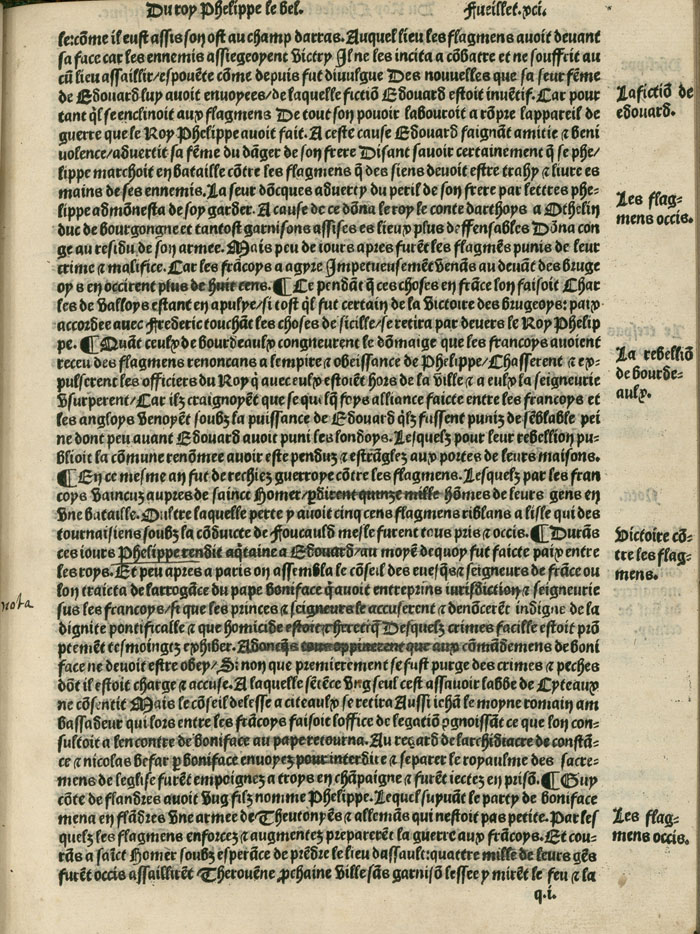 Du roy Phelippe le bel.
Fueillet.xci.
le:cõme il eust assis son ost au champ darras. Auquel lieu les flagmens auoit deuant
sa face car les ennemis assiegeoyent victry Il ne les incita a cõbatre et ne souffrit au
cũ lieu assaillir/espouẽte cõme depuis fut diuulgue Des nouuelles que sa seur fẽme
de Edouard luy auoit enuoyees/de laquelle fictiõ Edouard estoit inuẽtif. Car pour
tant ql̃ se enclinoit aux flagmens De tout son pouoir labouroit a rõpre lappareil de
guerre que le Roy Phelippe auoit fait. A ceste cause Edouard faignãt amitie ⁊ beni
uolence/aduertit sa fẽme du dãger de son frere Disant sauoir certainement q̃ se phe/
lippe marchoit en bataille cõtre les flagmens q̃ des siens deuoit estre trahy ⁊ liure es
mains de ses ennemis. La seur dõcques aduerty du peril de son frere par lettres phe-
lippe admõnesta de soy garder. A cause de ce dõna le roy le conte darthoys a Othelin
duc de bourgongne et tantost garnisons assises es lieux plus deffensables Dõna con
ge au residu de son armee. Mais peu de iours apres furẽt les flagmẽs punis de leur
crime ⁊ malifice. Car les frãcoys a agyre Impetueusemẽt venãs au deuãt des bruge
oys en occirent plus de huit cens. ¶ Ce pendãt q̃ ces choses en frãce lon faisoit Char
les de valloys estant en apulye/si tost ql̃ fut certain de la victoire des brugeoys: paix
accordee auec Frederic touchãt les choses de sicille/se retira par deuers le Roy Phelip
pe. ¶ Quãt ceulx de bourdeaulx congneurent le dõmaige que les francoys auoient
receu des flagmens renoncans a lempire ⁊ obeissance de Phelippe/Chasserent ⁊ ex-
pulserent les officiers du Roy q̃ auec eulx estoiẽt hors de la ville ⁊ a eulx la seigneurie
vsurperent/Car ilz craignoyẽt que se quelq̃ foys alliance faicte entre les francoys et
les angloys venoyẽt soubz la puissance de Edouard ql̃z fussent puniz de sẽblable pei
ne dont peu auant Edouard auoit puni les londoys. Lesquelz pour leur rebellion pu-
blioit la cõmune renõmee auoir este penduz ⁊ estrãglez aux portes de leurs maisons.
¶ En ce mesme an fut de rechiez guerroye cõtre les flagmens. Lesquelz par les fran
coys vaincuz aupres de sainct Homer/p̱dirent quinze mille hõmes de leurs gens en
vne bataille. Oultre laquelle perte y auoit cinq cens flagmens riblans a lisle qui des
tournaisiens soubz la cõduicte de Foucauld mesle furent tous pris ⁊ occis. ¶ Durãs
ces iours Phelippe rendit aq̃taine a Edouard/au moyẽ dequoy fut faicte paix entre
les roys. Et peu apres a paris on assembla le cõseil des euesq̃s ⁊ seigneurs de frãce ou
lon traicta de larrogãce du pape boniface q̃ auoit entreprins iurisdiction ⁊ seigneurie
sus les francoys/si que les princes ⁊ seigneurs le accuserent ⁊ denõcerẽt indigne de la
dignite pontificalle ⁊ que homicide estoit ⁊ heretiq̃ Desquelz crimes facille estoit prõ
ptemẽt tesmoingtz exhiber. Adoncq̃s tous oppinerent que aux cõmãdemens de boni
face ne deuoit estre obey/Si non que premierement se fust purge des crimes ⁊ peches
dõt il estoit charge ⁊ accuse. A laquelle sẽtẽce vng seul cest assauoir labbe de Cyteaux
ne cõsentit Mais le cõseil delesse a citeaulx se retira Aussi iehã le moyne romain am
bassadeur qui lors entre les frãcoys faisoit loffice de legatiõ ꝓgnoissãt ce que lon con-
sultoit a lencontre de boniface au pape retourna. Au regard de larchidiacre de constã-
ce ⁊ nicolas befar p̱ boniface enuoyez pour interdire ⁊ separer le royaulme des sacre-
mens de leglise furẽt empoignez a troys en chãpaigne ⁊ furẽt iectez en prisõ. ¶ Guy
cõte de flandres auoit vng filz nomme Phelippe. Lequel suyuãt le party de boniface
mena en flãdres vne armee de Theutonyẽs ⁊ allemãs qui nestoit pas petite. Par les
quelz les flagmens enforcez ⁊ augmentez preparerẽt la guerre aux frãcoys. Et cou-
rãs a saĩct Homer soubz esperãce de prẽdre le lieu dassault:quattre mille de leurs gẽs
furẽt occis assaillirẽt Therouẽne ꝓchaine ville sãs garnisõ lessee y mirẽt le feu ⁊ la
q.i.
La fictiõ de
edouard.
Les flag-
mens occis.
La rebelliõ
de bourde-
aulx.
Victoire cõ-
tre les flag-
mens.
Les flag-
mens occis.
nota